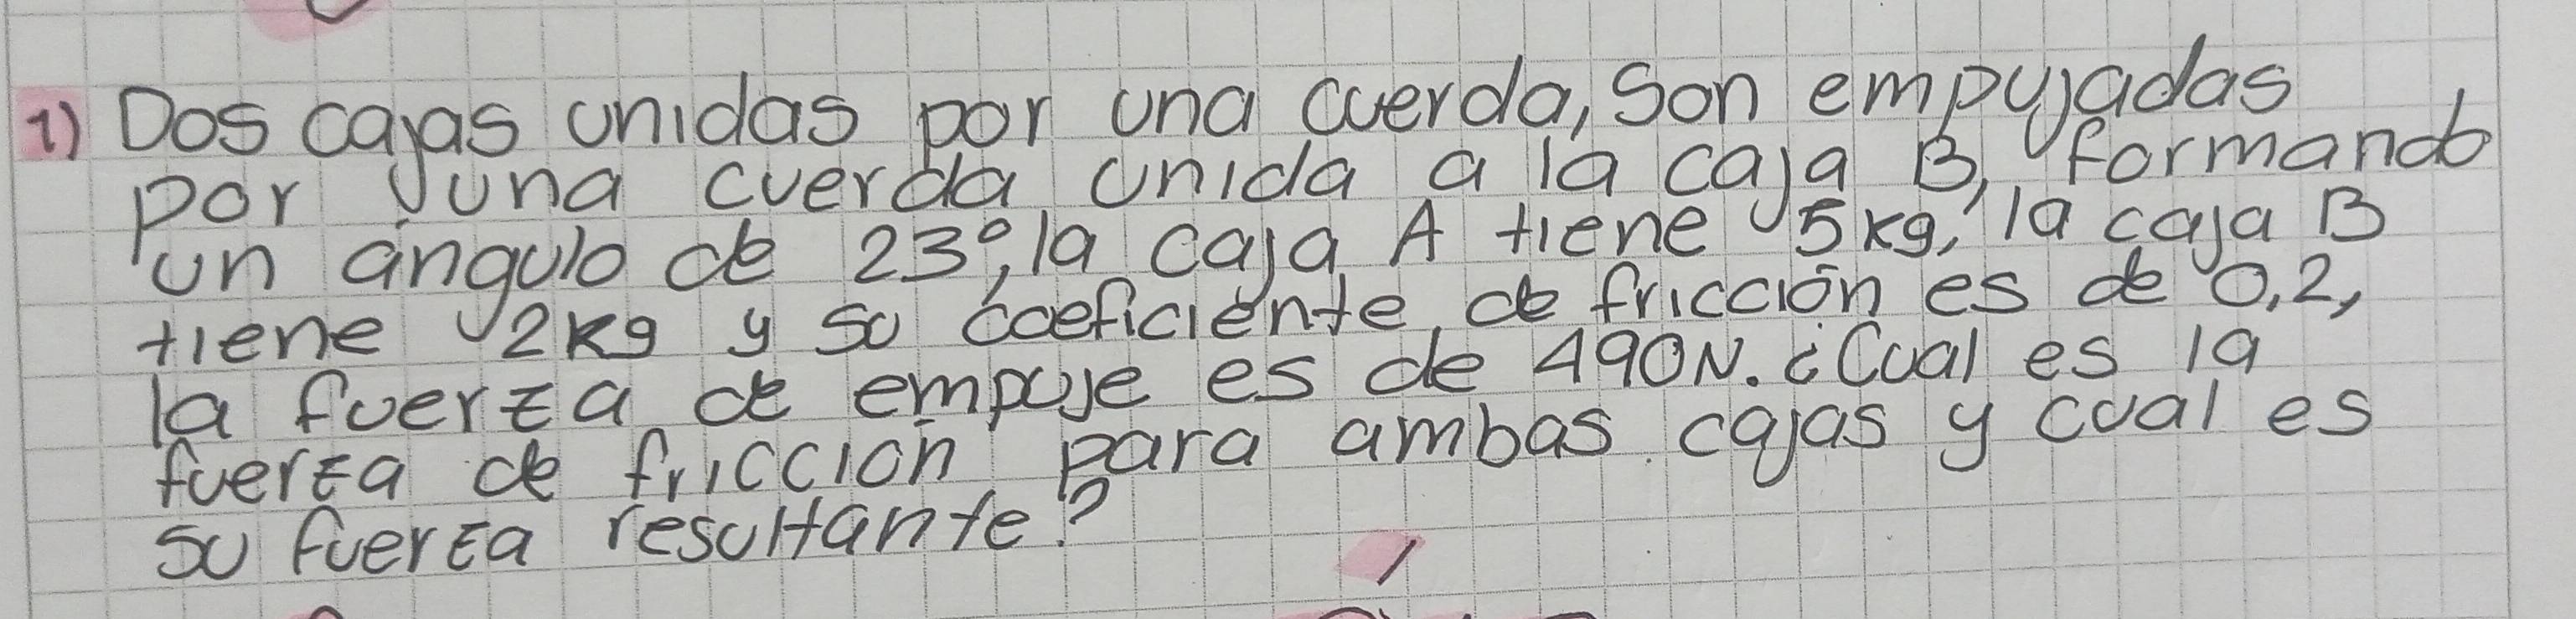 1) Dos cajas unidas por una cuerda, son empujadas
por una cuerda unida a la caja B, formando
un ángulo de 23°, la caja A tiene 5kg, la caja B
tiene 2kg y su coeficiente de fricción es de 0,2,
la fuerza de empuje es de 490N. ¿Cual es la
fuerza de fricción para ambas cajas y cual es
su fuerza resultante?